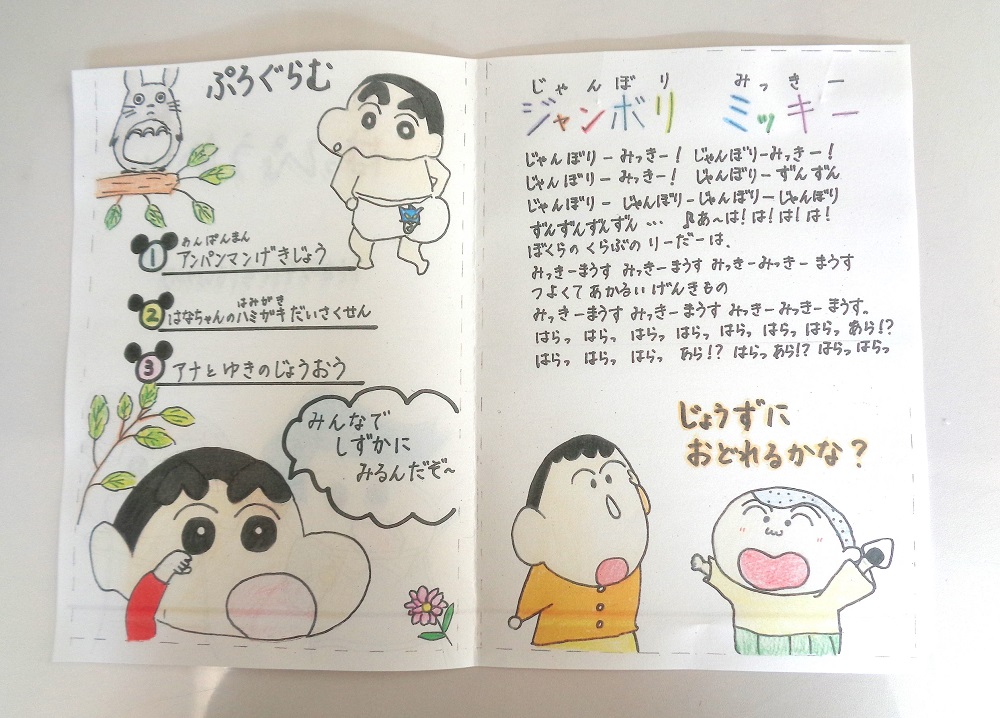 ぷろぐらむ
あんぱんまん
1 アンパンマンげきじょう
はみがき
2 はなちゃんのハミガキだいさくせん
3 アナとゆきのじょうおう
みんなで
しずかに
みるんだぞ〜
じゃんぼり みっきー
ジャンボリ ミッキー
じゃんぼりーみっきー! じゃんぼりーみっきー!
じゃんぼりーみっきー! じゃんぼりーずんずん
じゃんぼりー じゃんぼりーじゃんぼりーじゃんぼり
ずんずんずんずん… ♪あ〜は!は!は!は!
ぼくらのくらぶの りーだーは、
みっきーまうす みっきーまうす みっきーみっきー まうす
つよくて あかるい げんきもの
みっきーまうす みっきーまうす みっきーみっきーまうす。
はらっ はらっ はらっ はらっ はらっ はらっ はらっ あら!?
はらっ はらっ はらっ あら!? はらっ あら!? はらっ はらっ
じょうずに
おどれるかな?